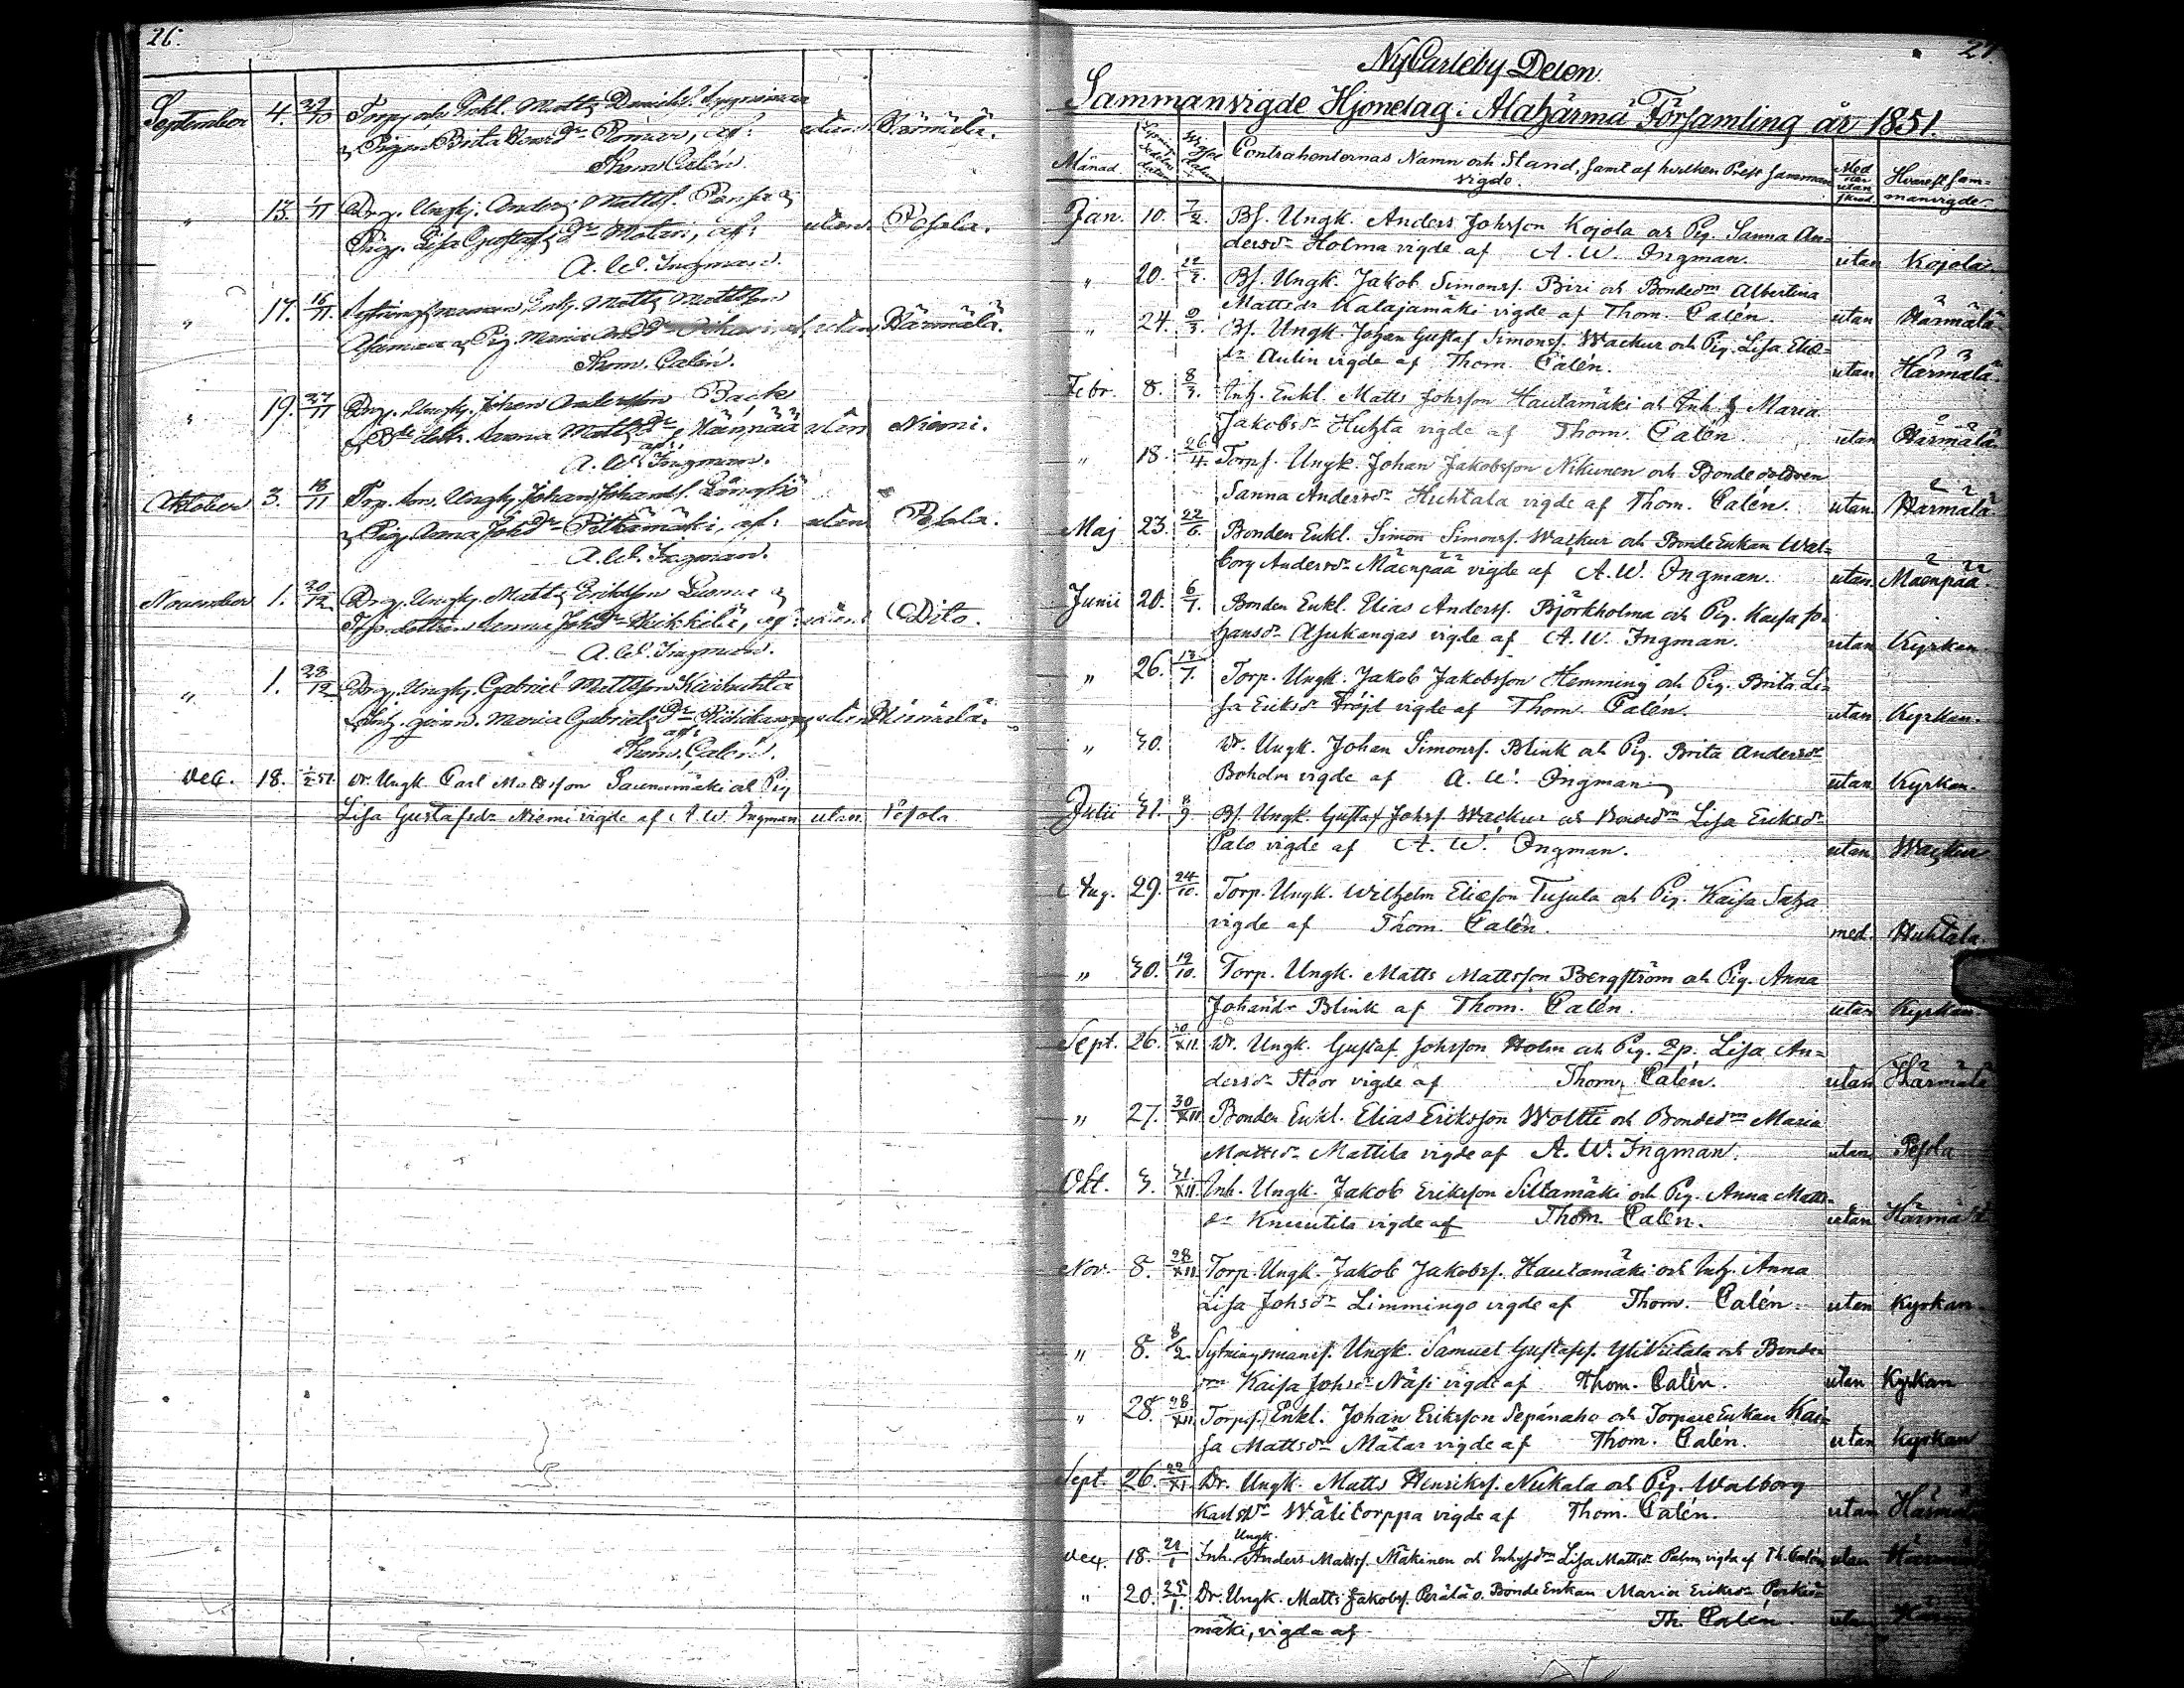 26.
September 4. 31/10 Torp. och Enkl. Matts Daniels.
& Pigan Brita Dr af: utan Härmälä.
Thom Calén.
" 13. 1/11 Drg. Ungk. Anders Mattss.
Pig. Lisa Gustafs Dr af: utan Pesola.
A. W. Ingman.
" 17. 16/11 Inh. Matts Mattsson
Pig. Maria utan Härmälä.
Thom. Calén.
" 19. 27/11 Drg. Ungk. Johan Andersson Back
Anna Matts Dr Mäenpää utan Niemi.
af:
A. W. Ingman.
Oktober 3. 18/11 Trp. son. Ungk. Johan Johanss.
& Pig. Anna Johs Dr Pitkämäki, af: utan Pesola.
A. W. Ingman.
November 1. 20/12 Drg. Ungk. Matts Eriksson Luoma &
Trp. dottren Anna Johs Dr Heikkilä, af: utan Dito.
A. W. Ingman.
" 1. 28/12 Drg. Ungk. Gabriel Mattsson
Inh. qvinn. Maria Gabriels Dr utan Härmälä.
af:
Thom. Calén.
Dec. 18. 1/2 51. Dr. Ungk. Carl Mattsson Saunamäki och Pig
Lisa Gustafsdr Niemi vigde af A. W. Ingman utan Pesola
27.
NyCarleby Delen.
Sammanvigde Hjonelag i Alahärmä Församling år 1851.
Månad Lysnings Sedelns datum Wigsel datum Contrahenternas Namn och Stand, samt af hvilken Prest samman Med eller utan Hvarest sam=
vigde. manvigde.
Jan. 10. 7/2. Bs. Ungk. Anders Johsson Kojola och Pig. Sanna An=
dersdr Holma vigde af A. W. Ingman. utan Kojola.
" 20. Bs. Ungk. Jakob Simonss. Biri och Bondedrn Albertina
Mattsdr Kalajamäki vigde af Thom. Calén. utan Härmälä
" 24. 9/3. Bs. Ungk. Johan Gustaf Simonss. Wackur och Pig. Lisa Elie=
dr Aulin vigde af Thom. Calén. utan Härmälä.
Febr. 8. 8/3. Inh. Enkl. Matts Johsson Hautamäki och Inh. Maria
Jakobsdr Huhta vigde af Thom. Calén. utan Härmälä
" 18. 26/4. Torps. Ungk. Johan Jakobsson Nikunen och Bondedottren
Sanna Andersdr Huhtala vigde af Thom. Calén. utan Härmälä
Maj 23. 22/6. Bonden Enkl. Simon Simonss. Wackur och Bonde Enkan Wal=
borg Andersdr Mäenpää vigde af A. W. Ingman. utan Mäenpää.
Junii 20. 6/7. Bonden Enkl. Elias Anderss. Björkholma och Pig. Kaisa Jo=
hansdr Asukangas vigde af A. W. Ingman. utan Kyrkan.
" 26. 13/7. Torp. Ungk. Jakob Jakobsson Hemming och Pig. Brita Li=
sa Eriksdr Fröjd vigde af Thom. Calén. utan Kyrkan.
" 30. Dr. Ungk. Johan Simonss. Blink och Pig. Brita Andersdr
Boholm vigde af A. W. Ingman utan Kyrkan.
Julii 31. 8/9. Bs. Ungk. Gustaf Johss. Wackur och Bondedrn Lisa Eriksdr
Palo vigde af A. W. Ingman. utan Wackur
Aug. 29. 24/10. Torp. Ungk. Wilhelm Eliesson Tusula och Pig. Kaisa Saha
vigde af Thom. Calén. med. Huhtala.
" 30. 19/10. Torp. Ungk. Matts Mattsson Bergström och Pig. Anna
Johansdr Blink af Thom. Calén. utan Kyrkan.
Sept. 26. 30/XII. Dr. Ungk. Gustaf Johsson Holm och Pig. Lisa An=
dersdr Stoor vigde af Thom. Calén. utan Härmälä
" 27. 30/XII Bonden Enkl. Elias Eriksson Woltti och Bondedrn Maria
Mattsdr Mattila vigde af A. W. Ingman. utan Pesola
Okt. 3. 31/XII. Inh. Ungk. Jakob Eriksson Siltamäki och Pig. Anna Matts=
dr Knuutila vigde af Thom. Calén. utan Härmälä
Nov. 8. 28/XII Torp. Ungk. Jakob Jakobss. Hautamäki och Inh. Anna
Lisa Johsdr Limmingo vigde af Thom. Calén. utan Kyrkan.
" 8. 8/2. Sytningsmanss. Ungk. Samuel Gustafss. YliViitala och Bonde
drn Kaisa Johsdr Näsi vigde af Thom. Calén. utan Kyrkan
" 28. 28/XII. Torps. Enkl. Johan Eriksson Sepänaho och Torpare Enkan Kai=
sa Mattsdr Mätar vigde af Thom. Calén. utan Kyrkan
Sept. 26. 22/XI. Dr. Ungk. Matts Henrikss. Niskala och Pig. Walborg
Karlsdr Wälitorppa vigde af Thom. Calén. utan Härmälä
Ungk.
Dec. 18. 21/1 Inh. Anders Mattss. Mäkinen och Inhysdrn Lisa Mattsdr Palm, vigda af Th. Calén utan
" 20. 25/1. Dr. Ungk. Matts Jakobss. Perälä o. Bonde Enkan Maria Eriksdr
mäki, vigda af Th. Calén utan